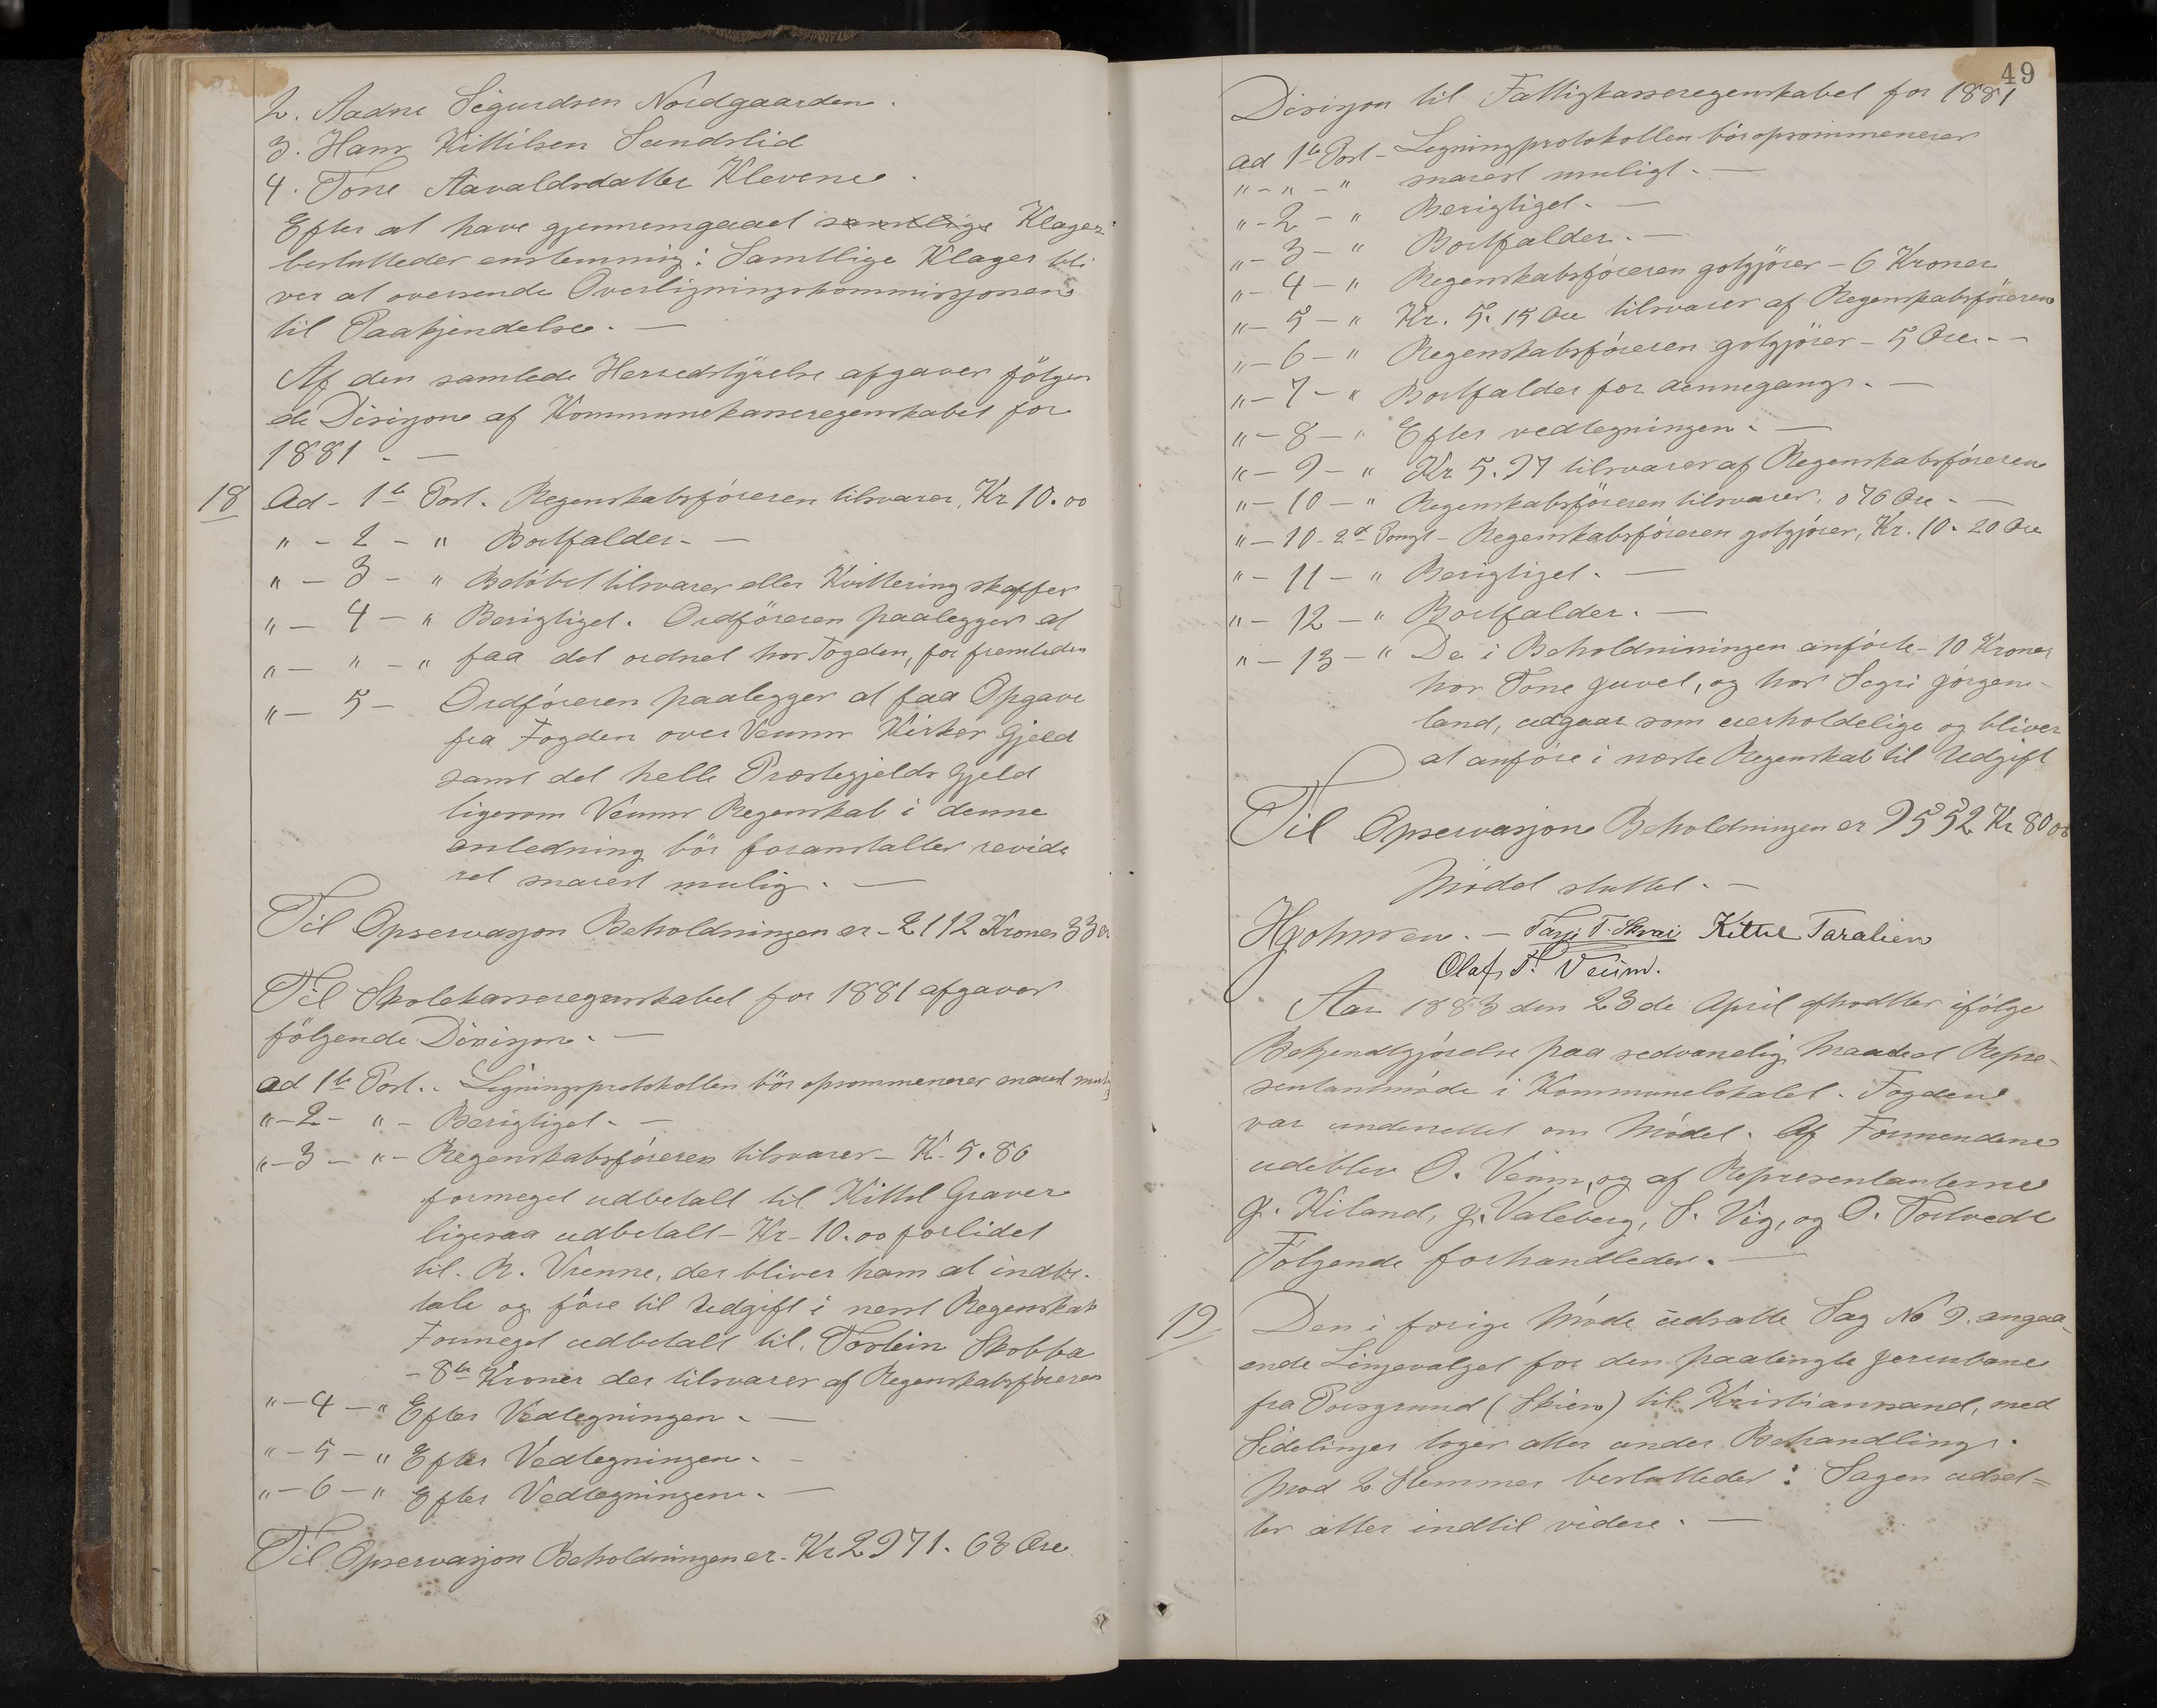 2. Aadne Sigurdsen Nordgaarden.
3. Hans Kittilsen Sundslid
4. Tone Aavaldsdatter Klevene.
Efter at have gjennemgaaet samtlige Klager
besluttedes enstemmig: Samtlige Klager bli
ver at oversende Overligningskommissjonen
til Paakjendelse. —
Af den samlede Herredstyrelse afgaves følgen
de Disisjone af Kommunekasseregenskabet for
1881. —
18 Ad - 1te Post. Regenskabsføreren tilsvarer, Kr 10.00
" - 2 - " Bortfalder. —
" - 3 - " Beløbet tilsvares eller Kvittering skaffes
" - 4 - " Berigtiget. Ordføreren paalegges at
" - " - " faa det ordnet hos Fogden, for fremtiden
" - 5 - Ordføreren paalegges at faa Opgave
fra Fogden over Veums Kirkes Gjeld
samt det helle Præstegjelds Gjeld
ligesom Veums Regenskab i denne
anledning bør foranstaltes revide
ret snarest mulig. —
Til Opservasjon Beholdningen er - 2112 Kroner 33 ør
Til Skolekasseregenskabet for 1881 afgaves
følgende Disisjon. —
ad 1te Post. - Ligningsprotokollen bør opsommeneres snarest mulig
" - 2 - " - Berigtiget. —
" - 3 - " - Regenskabsføreren tilsvarer - K. 5.86
formeget udbetalt til Kittel Graver
ligesaa udbetalt - Kr - 10.00 forlidet
til. R. Vrenne, der bliver ham at indbe-
tale og føre til Udgift i nest Regenskab
Formeget udbetalt til. Torbein Skobba
- 8te Kroner der tilsvares af Regenskabsføreren
" - 4 - " Efter Vedtegningen. —
" - 5 - " Efter Vedtegningen. —
" - 6 - " Efter Vedtegningen. —
Til Opservasjon Beholdningen er. Kr 2971. 63 Øre
49
Disisjon til Fattigkasseregenskabet for 1881
ad 1te Post - Legningsprotokollen bør opsommeneres
" - " - " snarest muligt. —
" - 2 - " Berigtiget. —
" - 3 - " Bortfalder. —
" - 4 - " Regenskabsføreren gotgjøres - 6 Kroner
" - 5 - " Kr. 5. 15 Øre tilsvares af Regenskabsføreren
" - 6 - " Regenskabsføreren gotgjøres - 5 Øre. -
" - 7 - " Bortfalder for dennegang. —
" - 8 - " Efter vedtegningen. —
" - 9 - " Kr 5.97 tilsvares af Regenskabsføreren
" - 10 - " Regenskabsføreren tilsvarer. 0 76 Øre. —
" - 10 - 2d Pongt - Regenskabsføreren gotgjøres, Kr. 10. 20 Øre
" - 11 - " Berigtiget. —
" - 12 - " Bortfalder. —
" - 13 - " De i Beholdninningen anførte - 10 Kroner
hos Tone Juvet, og hos Segri Jørgens-
land, udgaar som uerholdelige og bliver
at anføre i næste Regenskab til Udgift
Til Opservasjone Beholdningen er 9552 Kr 80 ør
Mødet sluttet. —
Hgohnsen. — Tarjei T. Skrai Kittel Taralien
Olaf T. Veum.
Aar 1883 den 23de April afholdtes ifølge
Bekjendtgjørelse paa sedvanelig Maade et Repre-
sentantmøde i Kommunelokalet. Fogden
var underrettet om Mødet. Af Formendene
udeblev O. Veum, og af Representanterne
G. Kiland, J. Valeberg, S. Vig, og O. Tortvedt
Følgende forhandledes. —
19 Den i forige Møde udsatte Sag No 9. angaa-
ende Linjevalget for den paatengte Jernbane
fra Porsgrund (Skien) til Kristianssand, med
Sidelinjer toges atter under Behandling.
Mod 2 Stemmer besluttedes: Sagen udset-
tes atter indtil videre. —